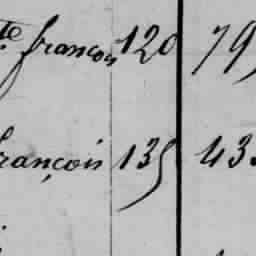 te françois 120 79
françois 135 433